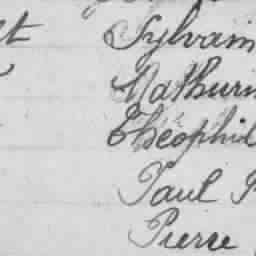 et Sylvain
Mathurin
Théophil
Paul P
Pierre